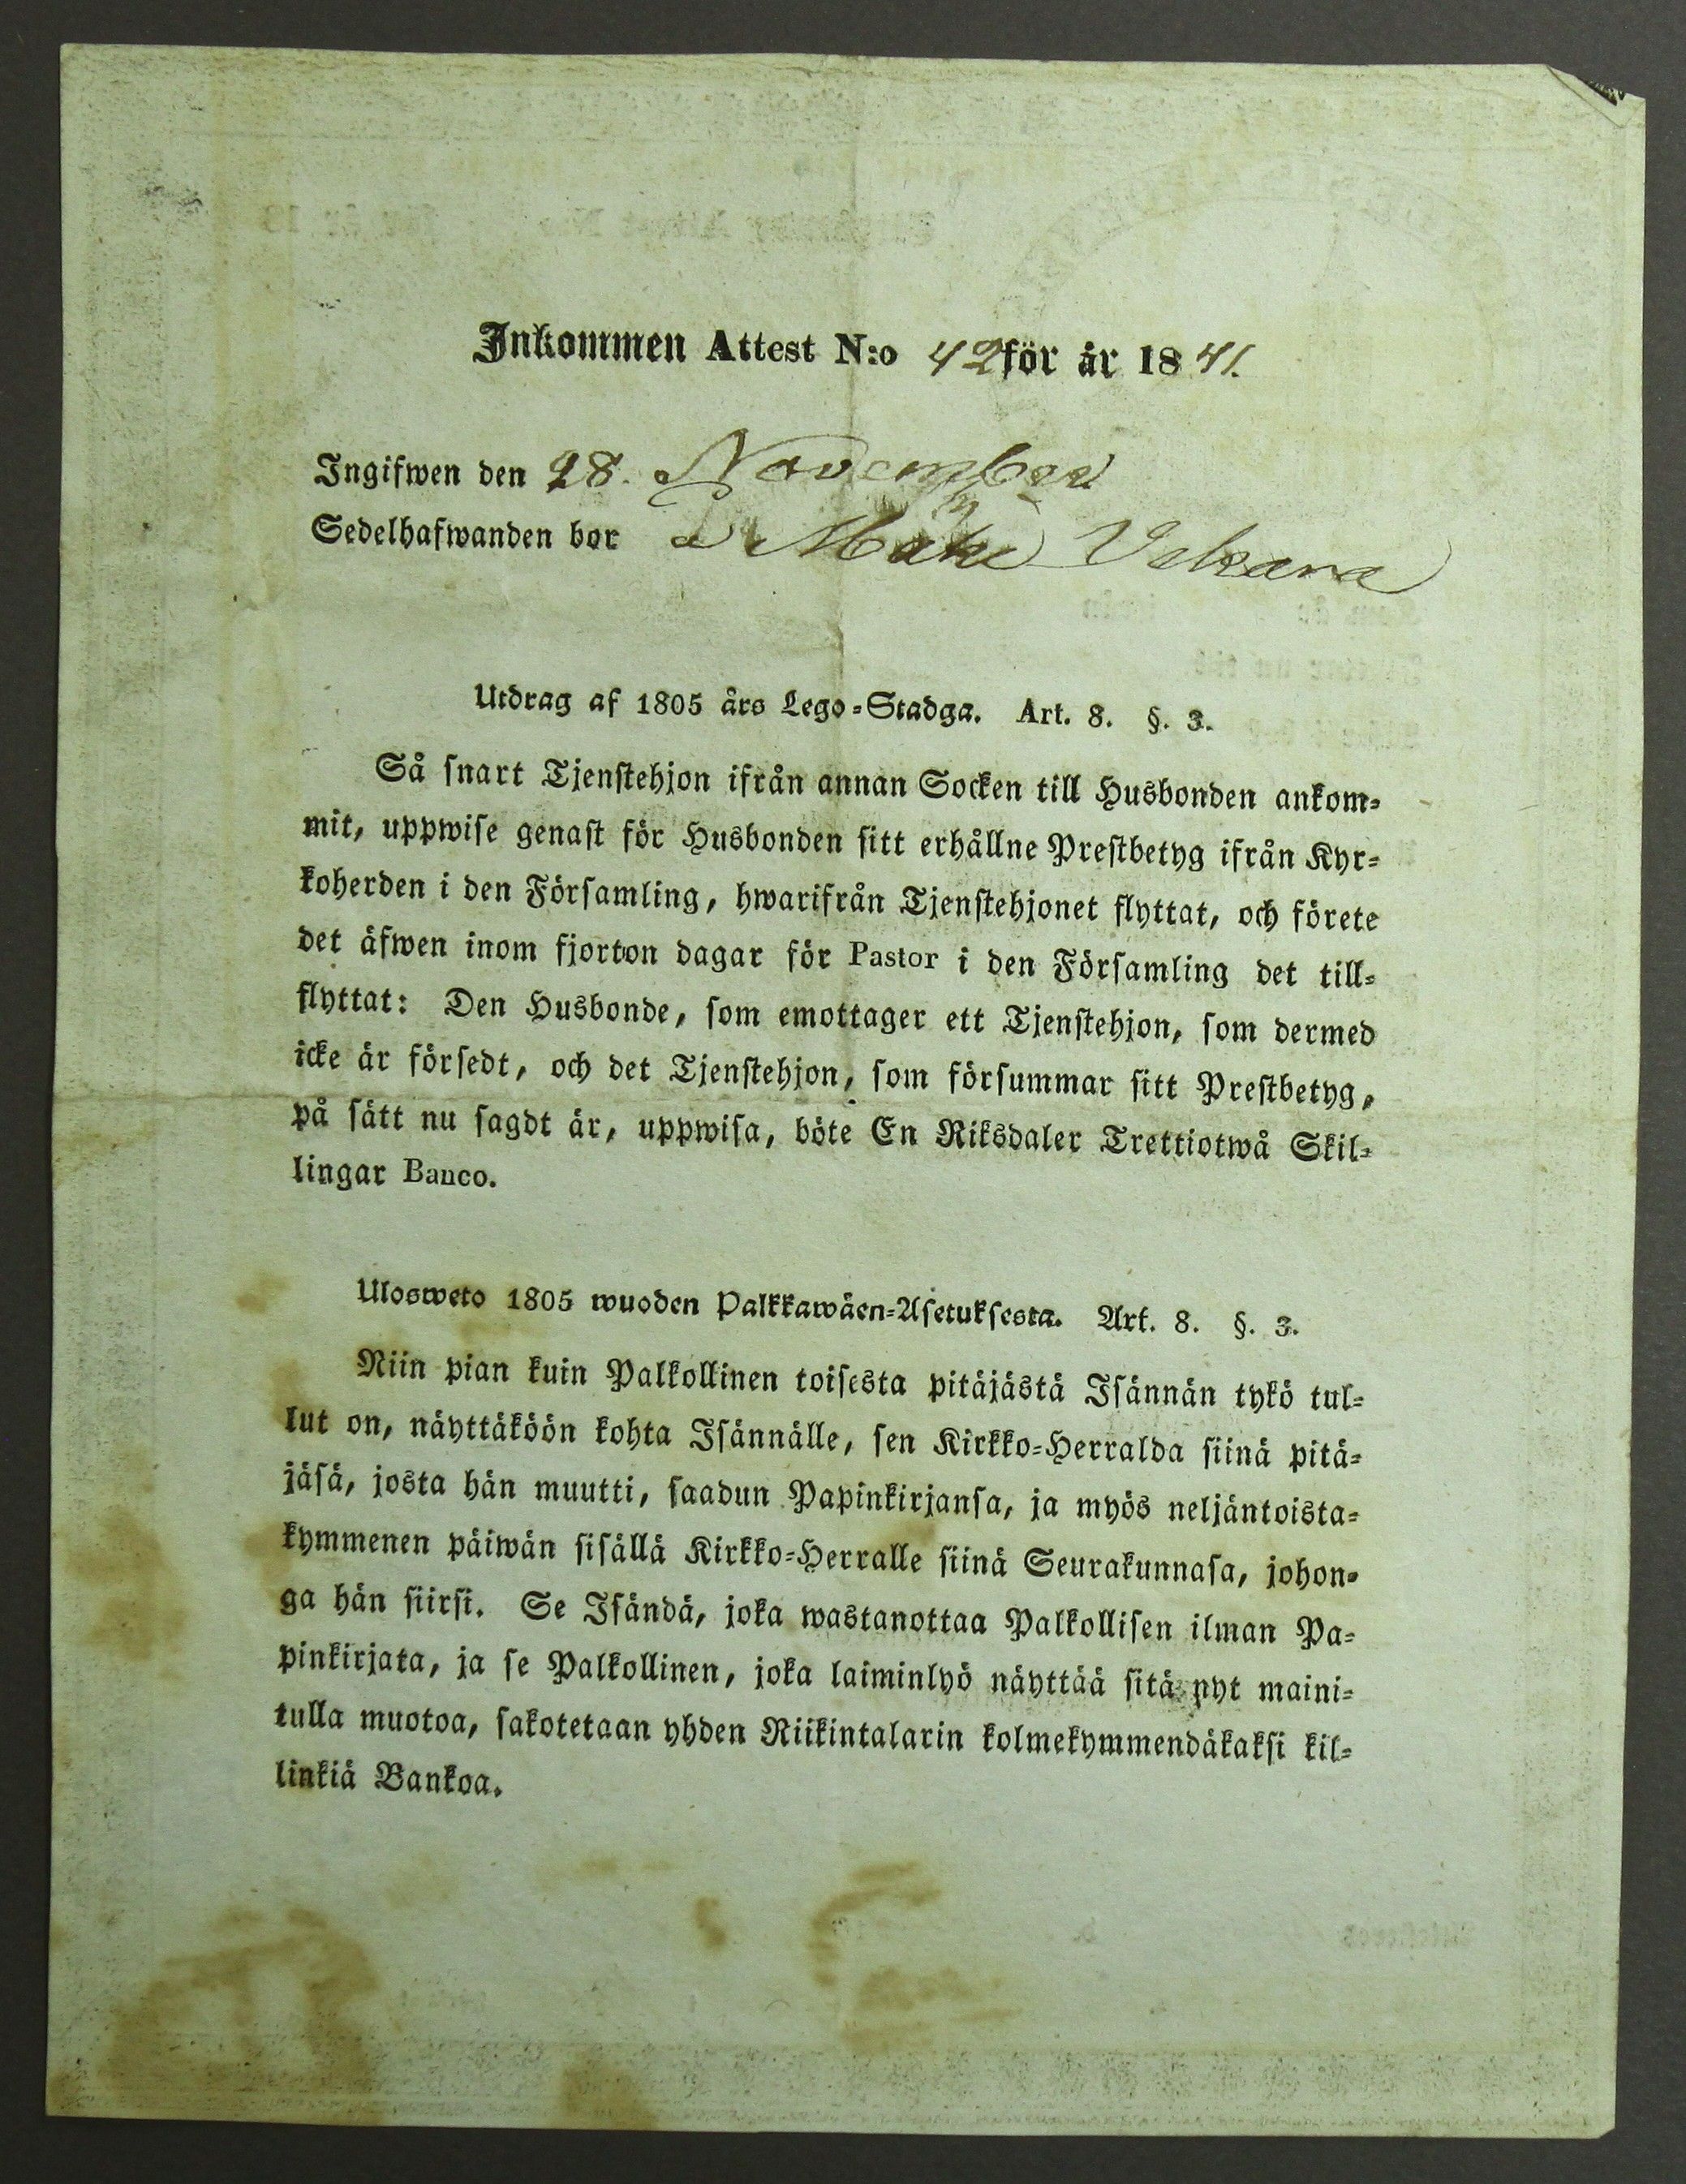 Inkommen Attest N:o 42 för år 1841.
Ingifwen den 28. November
Sedelhafwanden bor å Mäki Uskara
Utdrag af 1805 års Lego-Stadga. Art. 8. §. 3.
Så snart Tjenstehjon ifrån annan Socken till Husbonden ankom-
mit, uppwise genast för Husbonden sitt erhållne Prestbetyg ifrån Kyr-
koherden i den Församling, hwarifrån Tjenstehjonet flyttat, och förete
det äfwen inom fjorton dagar för Pastor i den Församling det till-
flyttat: Den Husbonde, som emottager ett Tjenstehjon, som dermed
icke är försedt, och det Tjenstehjon, som försummar sitt Prestbetyg,
på sätt nu sagdt är, uppwisa, böte En Riksdaler Trettiotwå Skil-
lingar Banco.
Ulosweto 1805 wuoden Palkkawäen-Asetuksesta. Art. 8. §. 3.
Niin pian kuin Palkollinen toisesta pitäjästä Isännän tykö tul-
lut on, näyttäköön kohta Isännälle, sen Kirkko-Herralda siinä pitä-
jäsä, josta hän muutti, saadun Papinkirjansa, ja myös neljäntoista-
kymmenen päiwän sisällä Kirkko-Herralle siinä Seurakunnasa, johon-
ga hän siirsi. Se Isändä, joka wastanottaa Palkollisen ilman Pa-
pinkirjata, ja se Palkollinen, joka laiminlyö näyttää sitä nyt maini-
tulla muotoa, sakotetaan yhden Riikintalarin kolmekymmendäkaksi kil-
linkiä Bankoa.